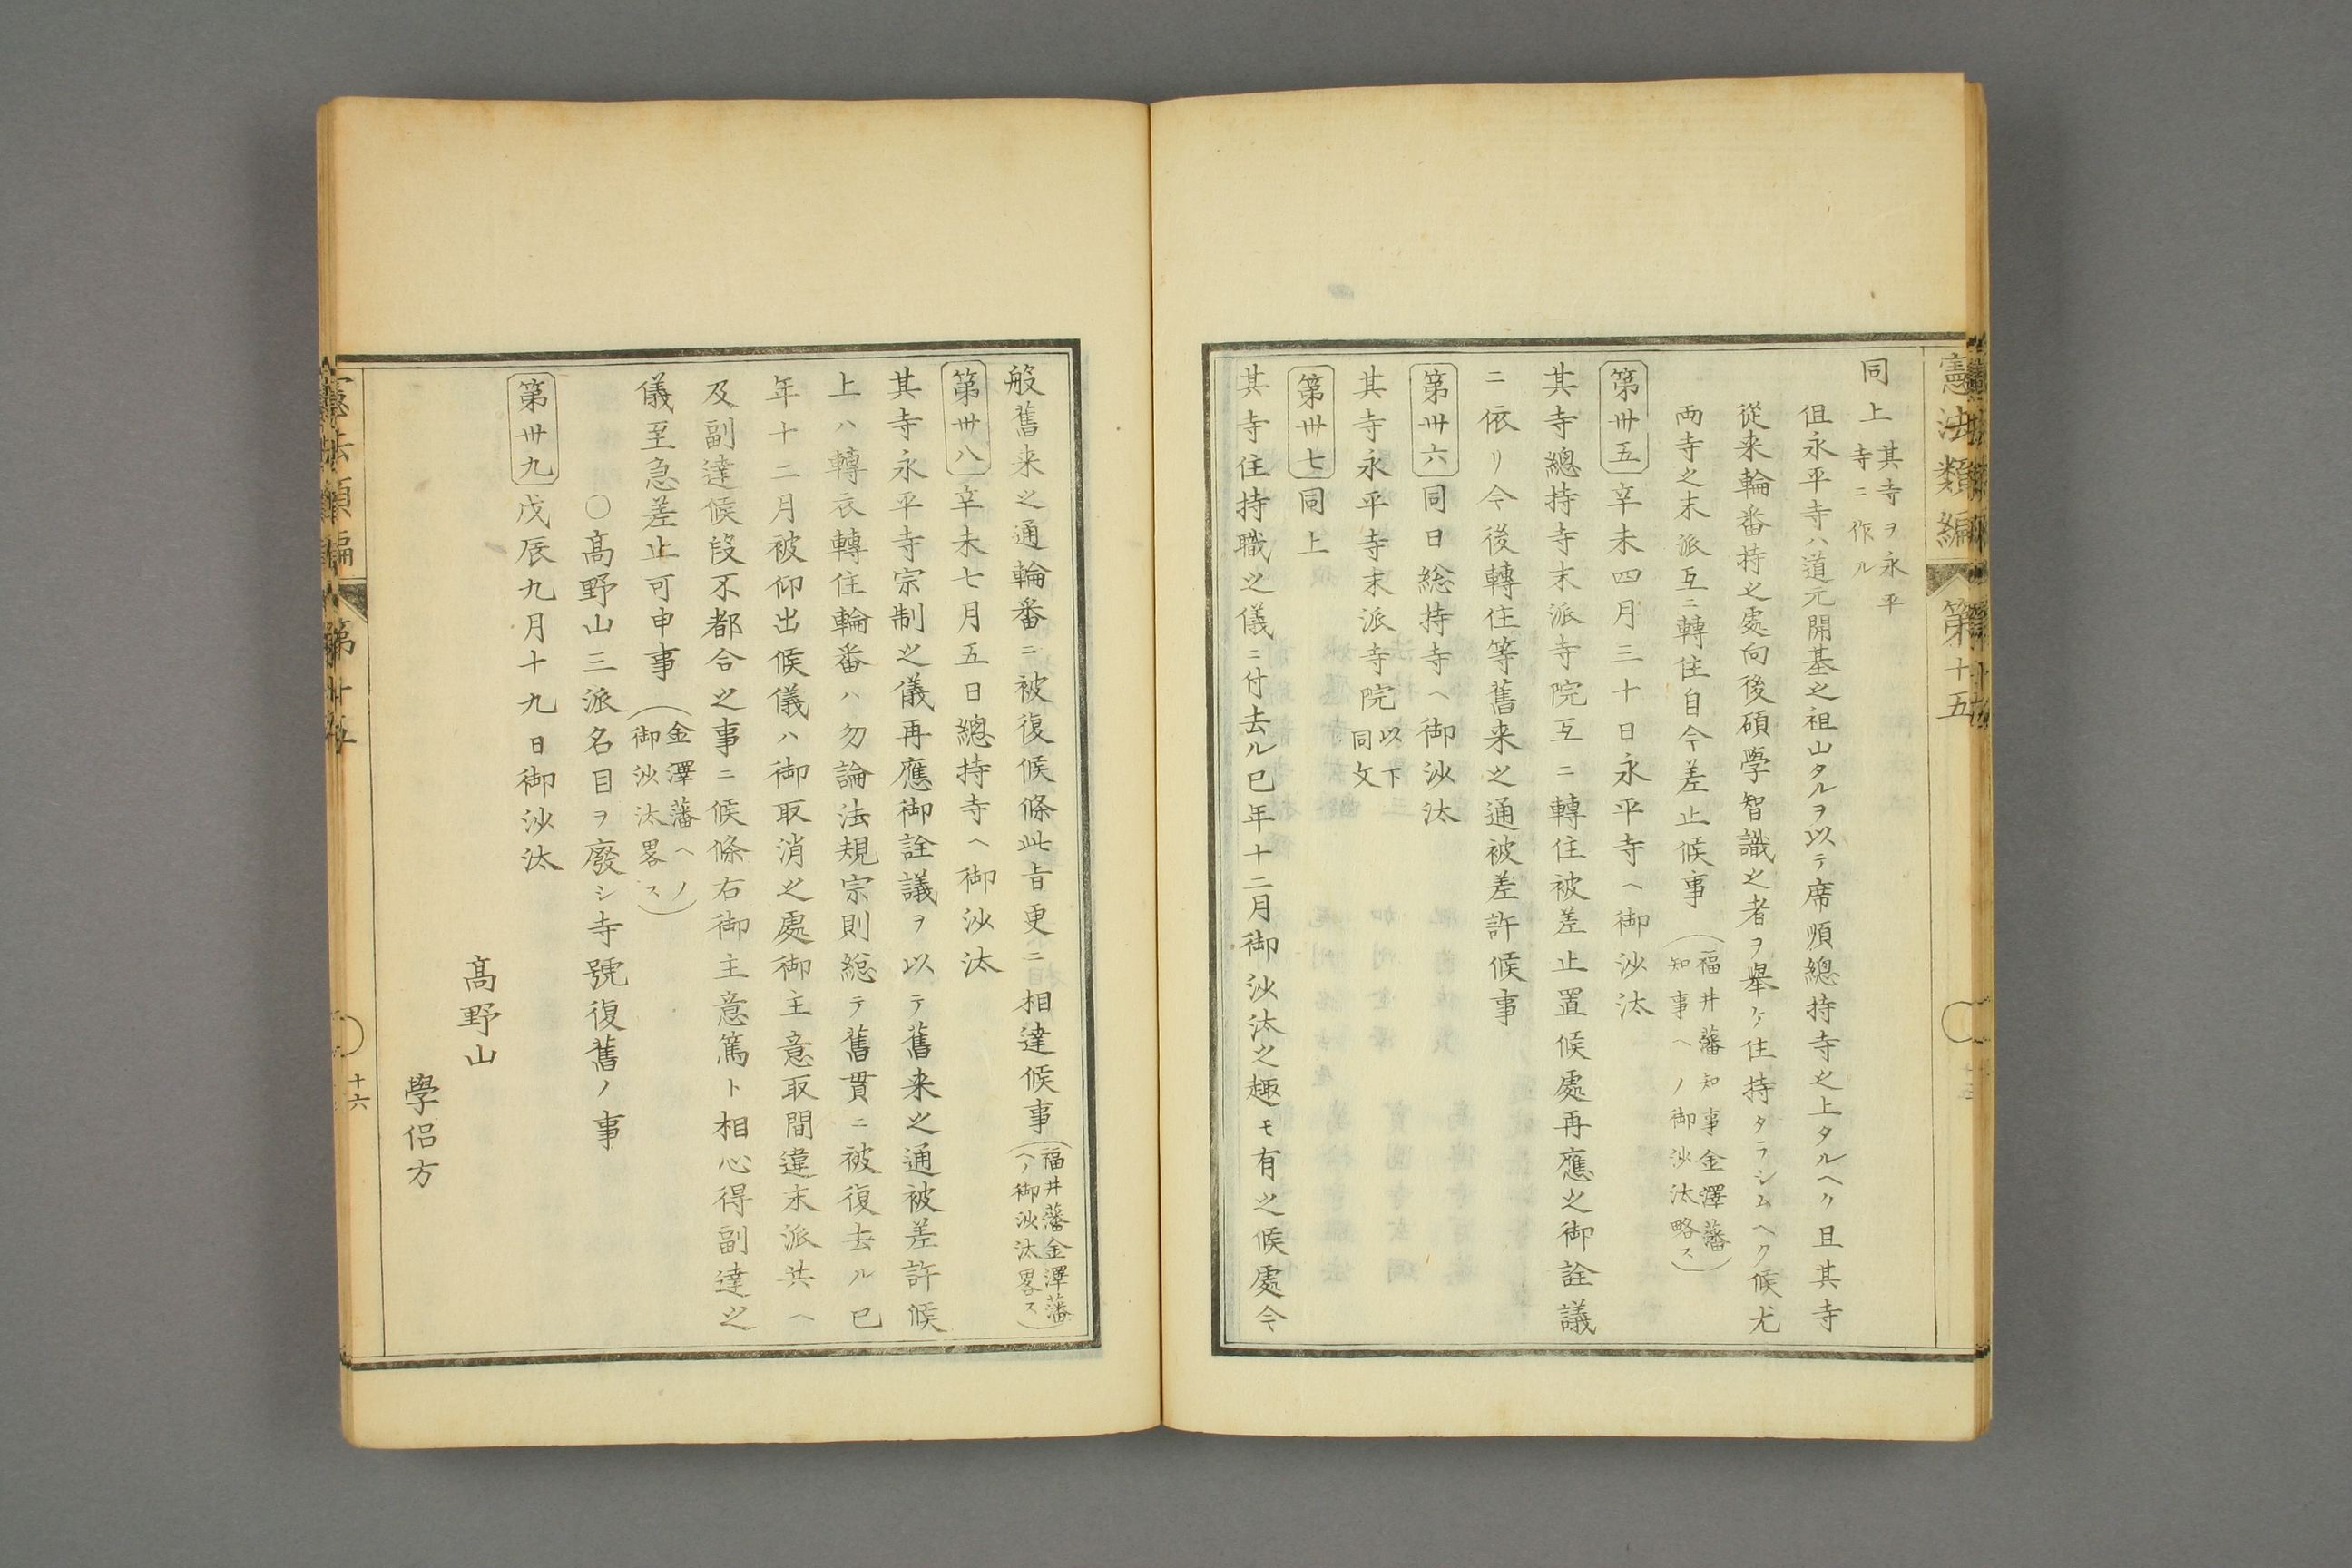 憲法類編 第十五
同上 其寺ヲ永平
寺ニ作ル
但永平寺ハ道元開基之祖山タルヲ以テ席順總持寺之上タルヘク且其寺
從来輪番持之處向後碩學智識之者ヲ舉ケ住持タラシムヘク候尤
両寺之末派互ニ轉住自今差止候事(福井藩知事金澤藩
知事ヘノ御沙汰略ス)
第卅五 辛未四月三十日永平寺ヘ御沙汰
其寺總持寺末派寺院互ニ轉住被差止置候處再應之御詮議
ニ依リ今後轉住等舊来之通被差許候事
第卅六 同日総持寺ヘ御沙汰
其寺永平寺末派寺院 以下
同文
第卅七 同上
其寺住持職之儀ニ付去ル巳年十二月御沙汰之趣モ有之候處今
般舊来之通輪番ニ被復候條此旨更ニ相達候事(福井藩金澤藩
ヘノ御沙汰畧ス)
第卅八 辛未七月五日總持寺ヘ御沙汰
其寺永平寺宗制之儀再應御詮議ヲ以テ舊来之通被差許候
上ハ轉衣轉住輪番ハ勿論法規宗則総テ舊貫ニ被復去ル巳
年十二月被仰出候儀ハ御取消之處御主意取間違末派共ヘ
及副達候段不都合之事ニ候條右御主意篤ト相心得副達之
儀至急差止可申事(金澤藩ヘノ
御沙汰畧ス)
〇髙野山三派名目ヲ廢シ寺號復舊ノ事
第卅九 戊辰九月十九日御沙汰
髙野山
學侶方
憲法類編 第十五
十六